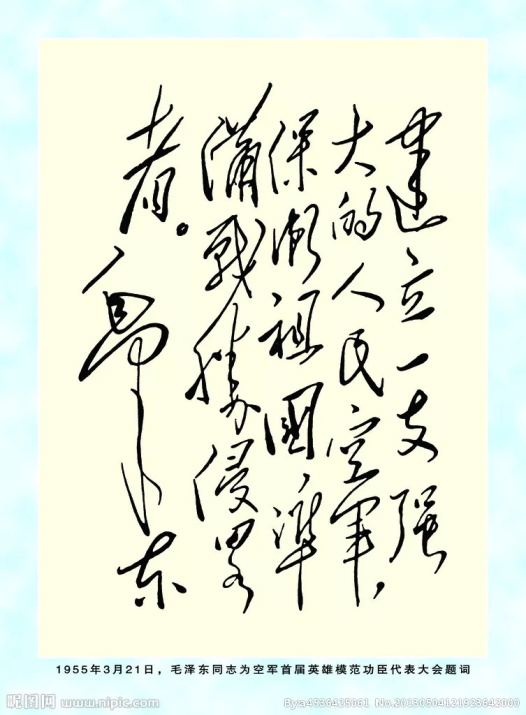 建立一支强
大的人民空軍，
保衛祖國，準
備戰勝侵畧
者。
毛澤东
1955年3月21日，毛泽东同志为空军首届英雄模范功臣代表大会题词
昵图网 www.nipic.com
By:a4936435061 No.20130504121923642000